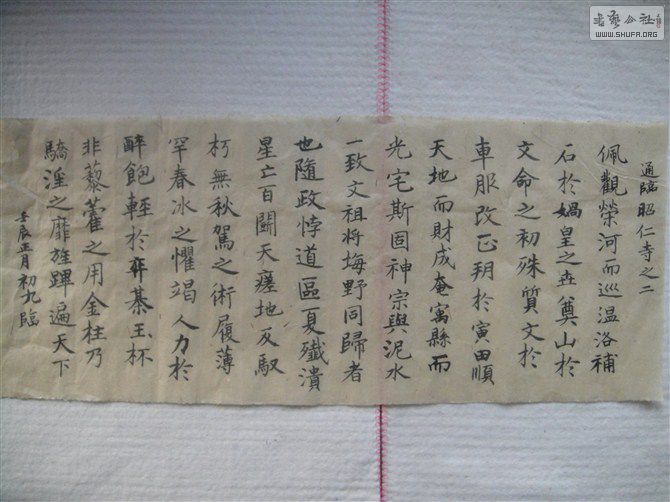 通臨昭仁寺之二
佩觀榮河而巡温洛補
石於媧皇之世奠山於
文命之初殊質文於
車服改正玥於寅田順
天地而財成奄寓縣而
光宅斯固神宗與泥水
一致文祖将塢野同歸者
也隨政悖道區夏殲潰
星亡百鬭天瘥地反馭
朽無秋駕之術履薄
罕春冰之懼竭人力於
醉飽輕於弈棊玉杯
非藜藿之用金柱乃
驕淫之靡旌蹕遍天下
壬辰正月初九臨
書藝公社
WWW.SHUFA.ORG